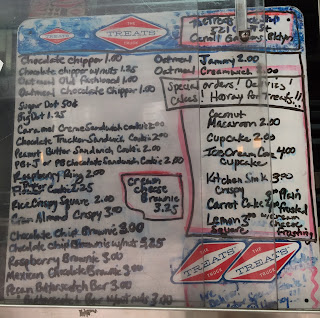 THE TREATS TRUCK
THE TREATS TRUCK
521 Court St
Carroll Gardens, Bklyn
Chocolate Chipper 1.00
Chocolate chipper w/nuts 1.25
Oatmeal Old Fashioned 1.00
Oatmeal Chocolate Chipper 1.00
Sugar Dot 50¢
Big Dot 1.25
Caramel Creme Sandwich Cookie 2.00
Chocolate Trucker Sandwich Cookie 2.00
Peanut Butter Sandwich Cookie 2.00
PB+J or PB Chocolate Sandwich Cookie 2.00
Raspberry Ring 2.00
Cookie 2.25
Rice Crispy Square 2.00
Almond Crispy 3.00
Chocolate Chip Brownie 3.00
Chocolate Chip Brownie w/nuts 3.25
Raspberry Brownie 3.00
Mexican Chocolate Brownie 3.00
Pecan Butterscotch Bar 3.00
w/nuts 3.00
Cream
Cheese
Brownie
3.25
Oatmeal Jammy 2.00
Oatmeal Creamwich 2.00
Special orders! Delivery!
Cakes! Hooray for Treats!!
Coconut
Macaroon 2.00
Cupcake 2.00
Ice Cream Cone 4.00
Cupcake
Kitchen Sink 3.00
Crispy
Carrot Cake
Plain
Frosted
Lemon 3.00
Square
w/cream
Cheese
Frosting
THE TREATS TRUCK
THE TREATS TRUCK